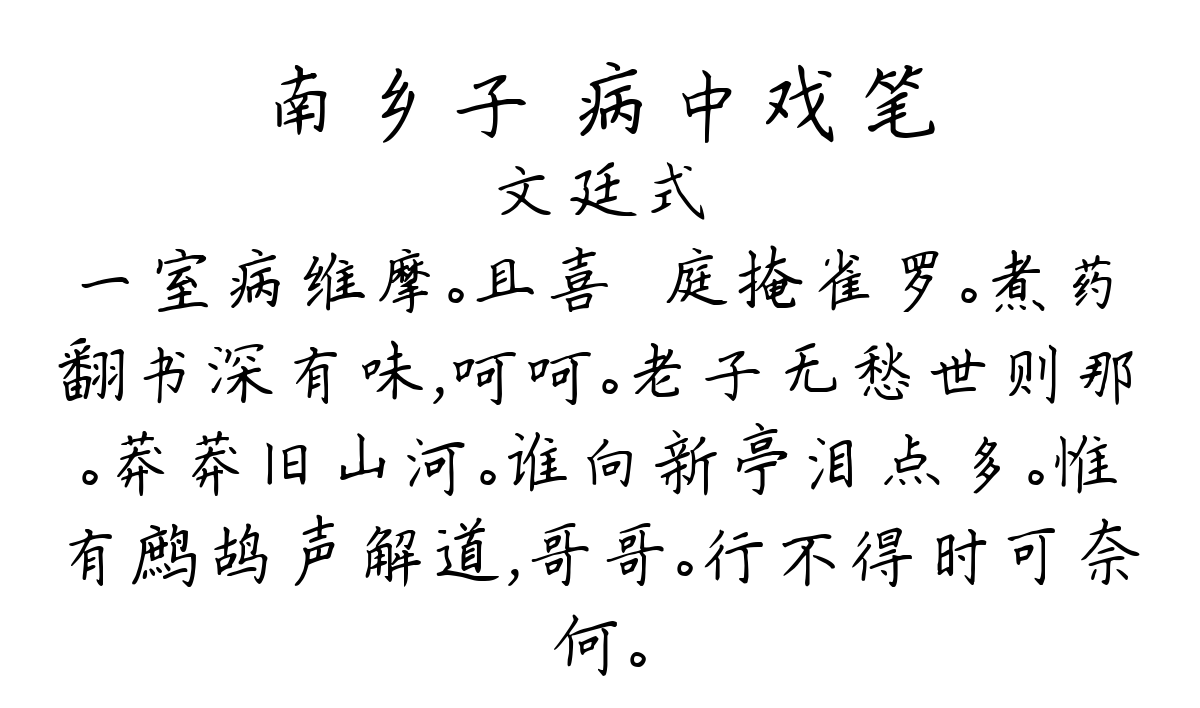 南乡子 病中戏笔
文廷式
一室病维摩。且喜 庭掩雀罗。煮药
翻书深有味,呵呵。老子无愁世则那
。莽莽旧山河。谁向新亭泪点多。惟
有鹧鸪声解道,哥哥。行不得时可奈
何。